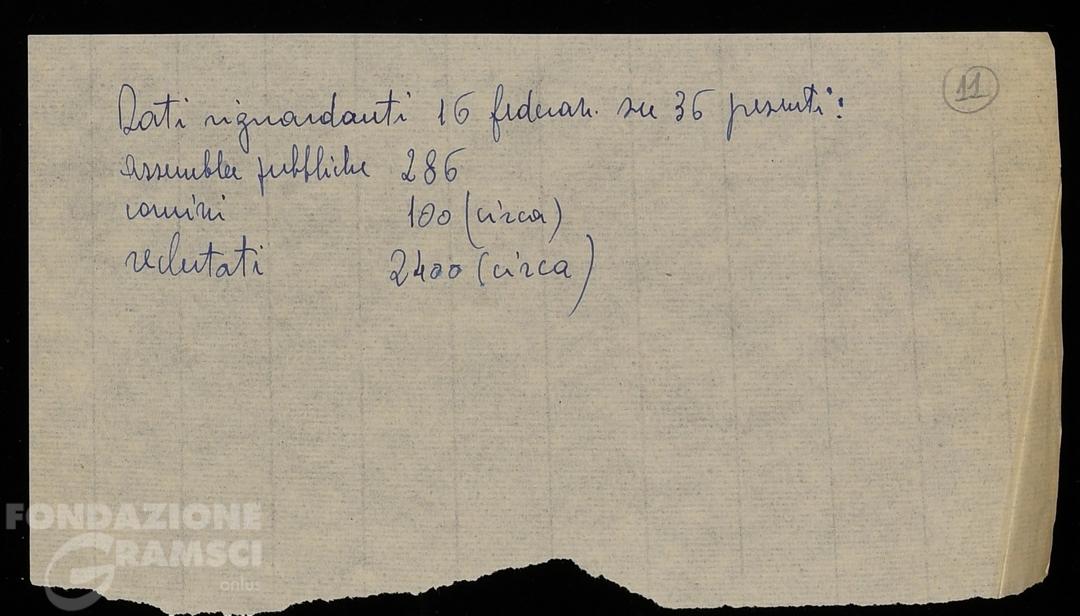 Dati riguardanti 16 federaz. su 36 presenti:
11
assemblee pubbliche 286
comizi 100 (circa)
reclutati 2400 (circa)
FONDAZIONE
GRAMSCI
onlus